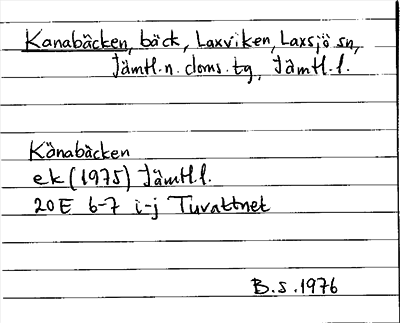 Kanabäcken, bäck, Laxviken, Laxsjö sn,
Jämtl.n. doms.tg, Jämtl.l.
Kånabäcken
ek (1975) Jämtl.l.
20E 6-7 i-j Tuvattnet
B.S.1976